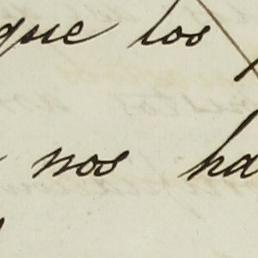 que los
nos ha